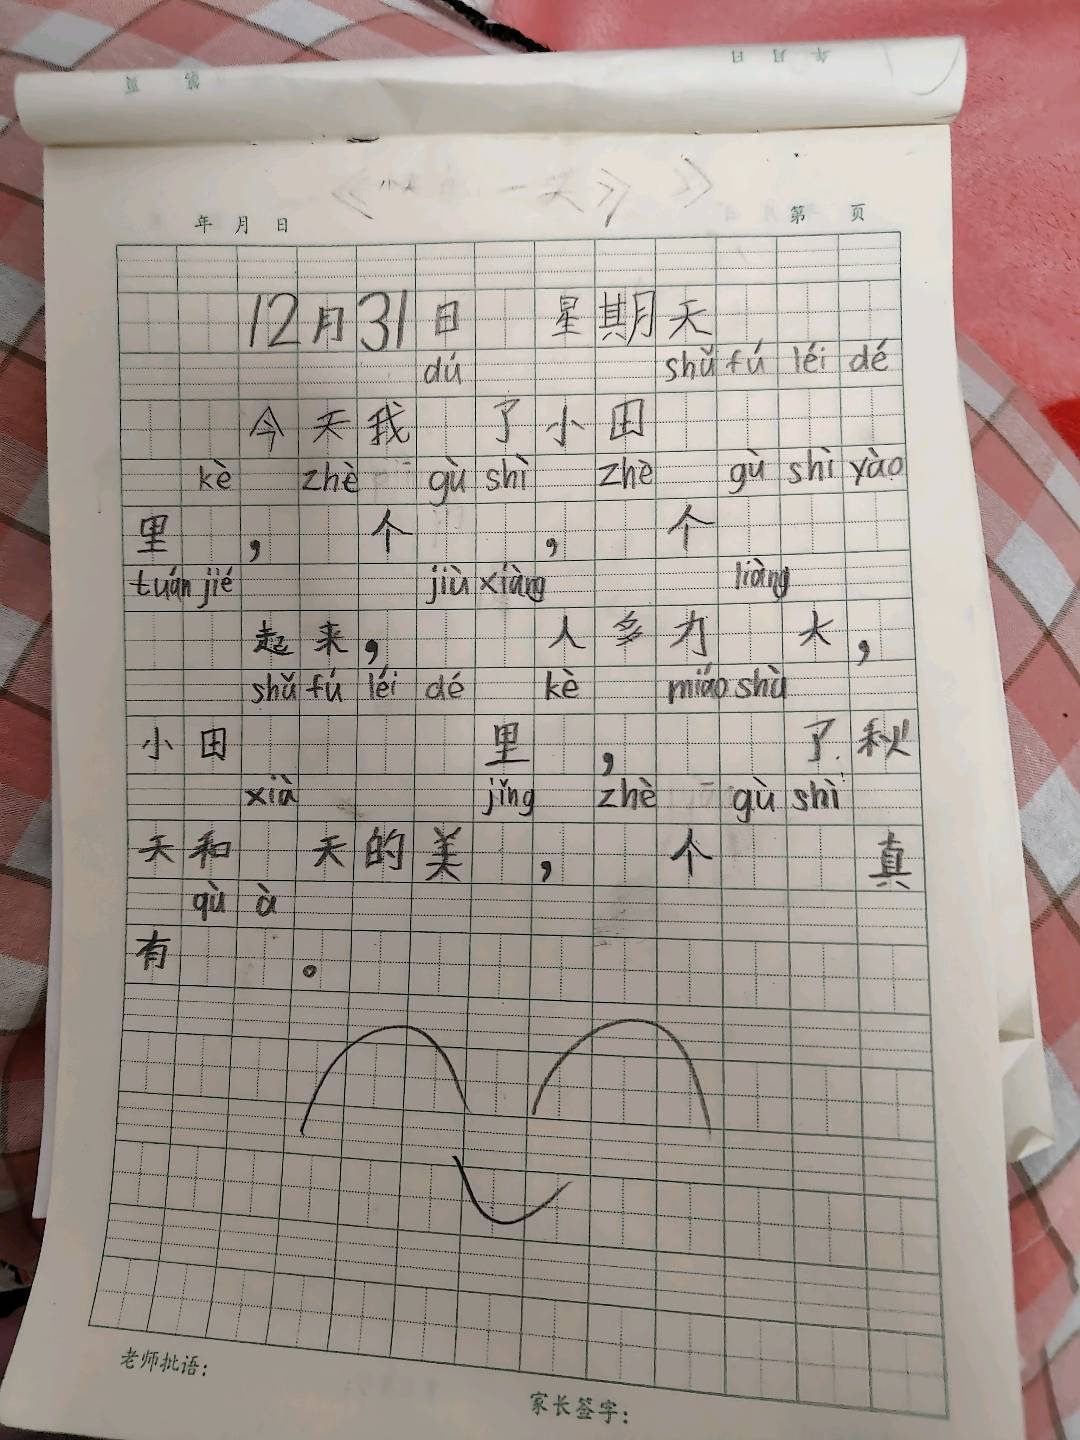 第 页
年 月 日
年 月 日
第 页
12月31日 星期天
dú shǔ fú léi dé
今天我 了小田
kè zhè gù shì zhè gù shì yào
里 , 个 , 个
tuán jié jiù xiàng liàng
起来, 人多力 大,
shǔ fú léi dé kè miáo shù
小田 里 , 了秋
xià jǐng zhè gù shì
天和 天的美 , 个 真
qù à
有 。
老师批语:
家长签字: